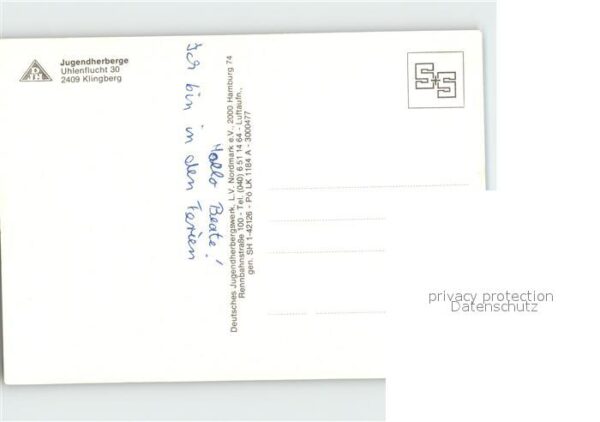 DJH
Jugendherberge
Uhlenflucht 30
2409 Klingberg
Hallo Beate!
Ich bin in den Ferien
Deutsches Jugendherbergswerk, L.V. Nordmark e.V., 2000 Hamburg 74
Rennbahnstraße 100 - Tel. (040) 6 51 14 64 - Luftaufn.,
gen. SH 1-42126 - Pö LK 1184 A - 3000477
S+S
privacy protection
Datenschutz